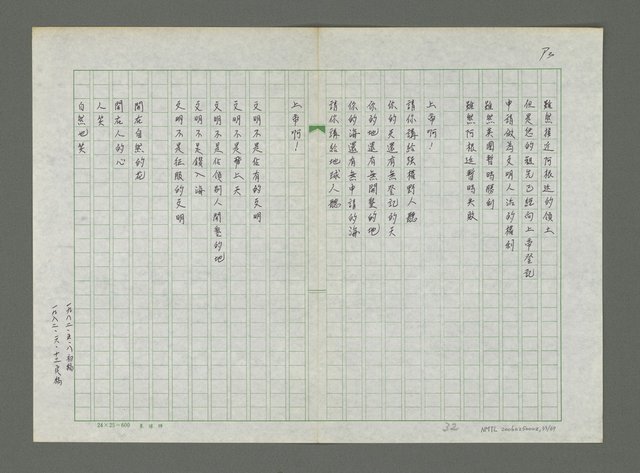 P5
雖然接近阿根廷的領土
但是您的祖先已經向上帝登記
申請做為文明人治的權利
雖然英國暫時勝利
雖然阿根廷暫時失敗
上帝啊！
請你講給強橫野人聽
你的天還有無登記的天
你的地還有無開墾的地
你的海還有無申請的海
請你講給地球人聽
上帝啊！
文明不是佔有的文明
文明不是攀上天
文明不是佔領別人開墾的地
文明不是鑽入海
文明不是征服的文明
開在自然的花
開在人的心
人笑
自然也笑
一九八二·五·八初稿
一九八二·六·十二完稿
24×25=600
32